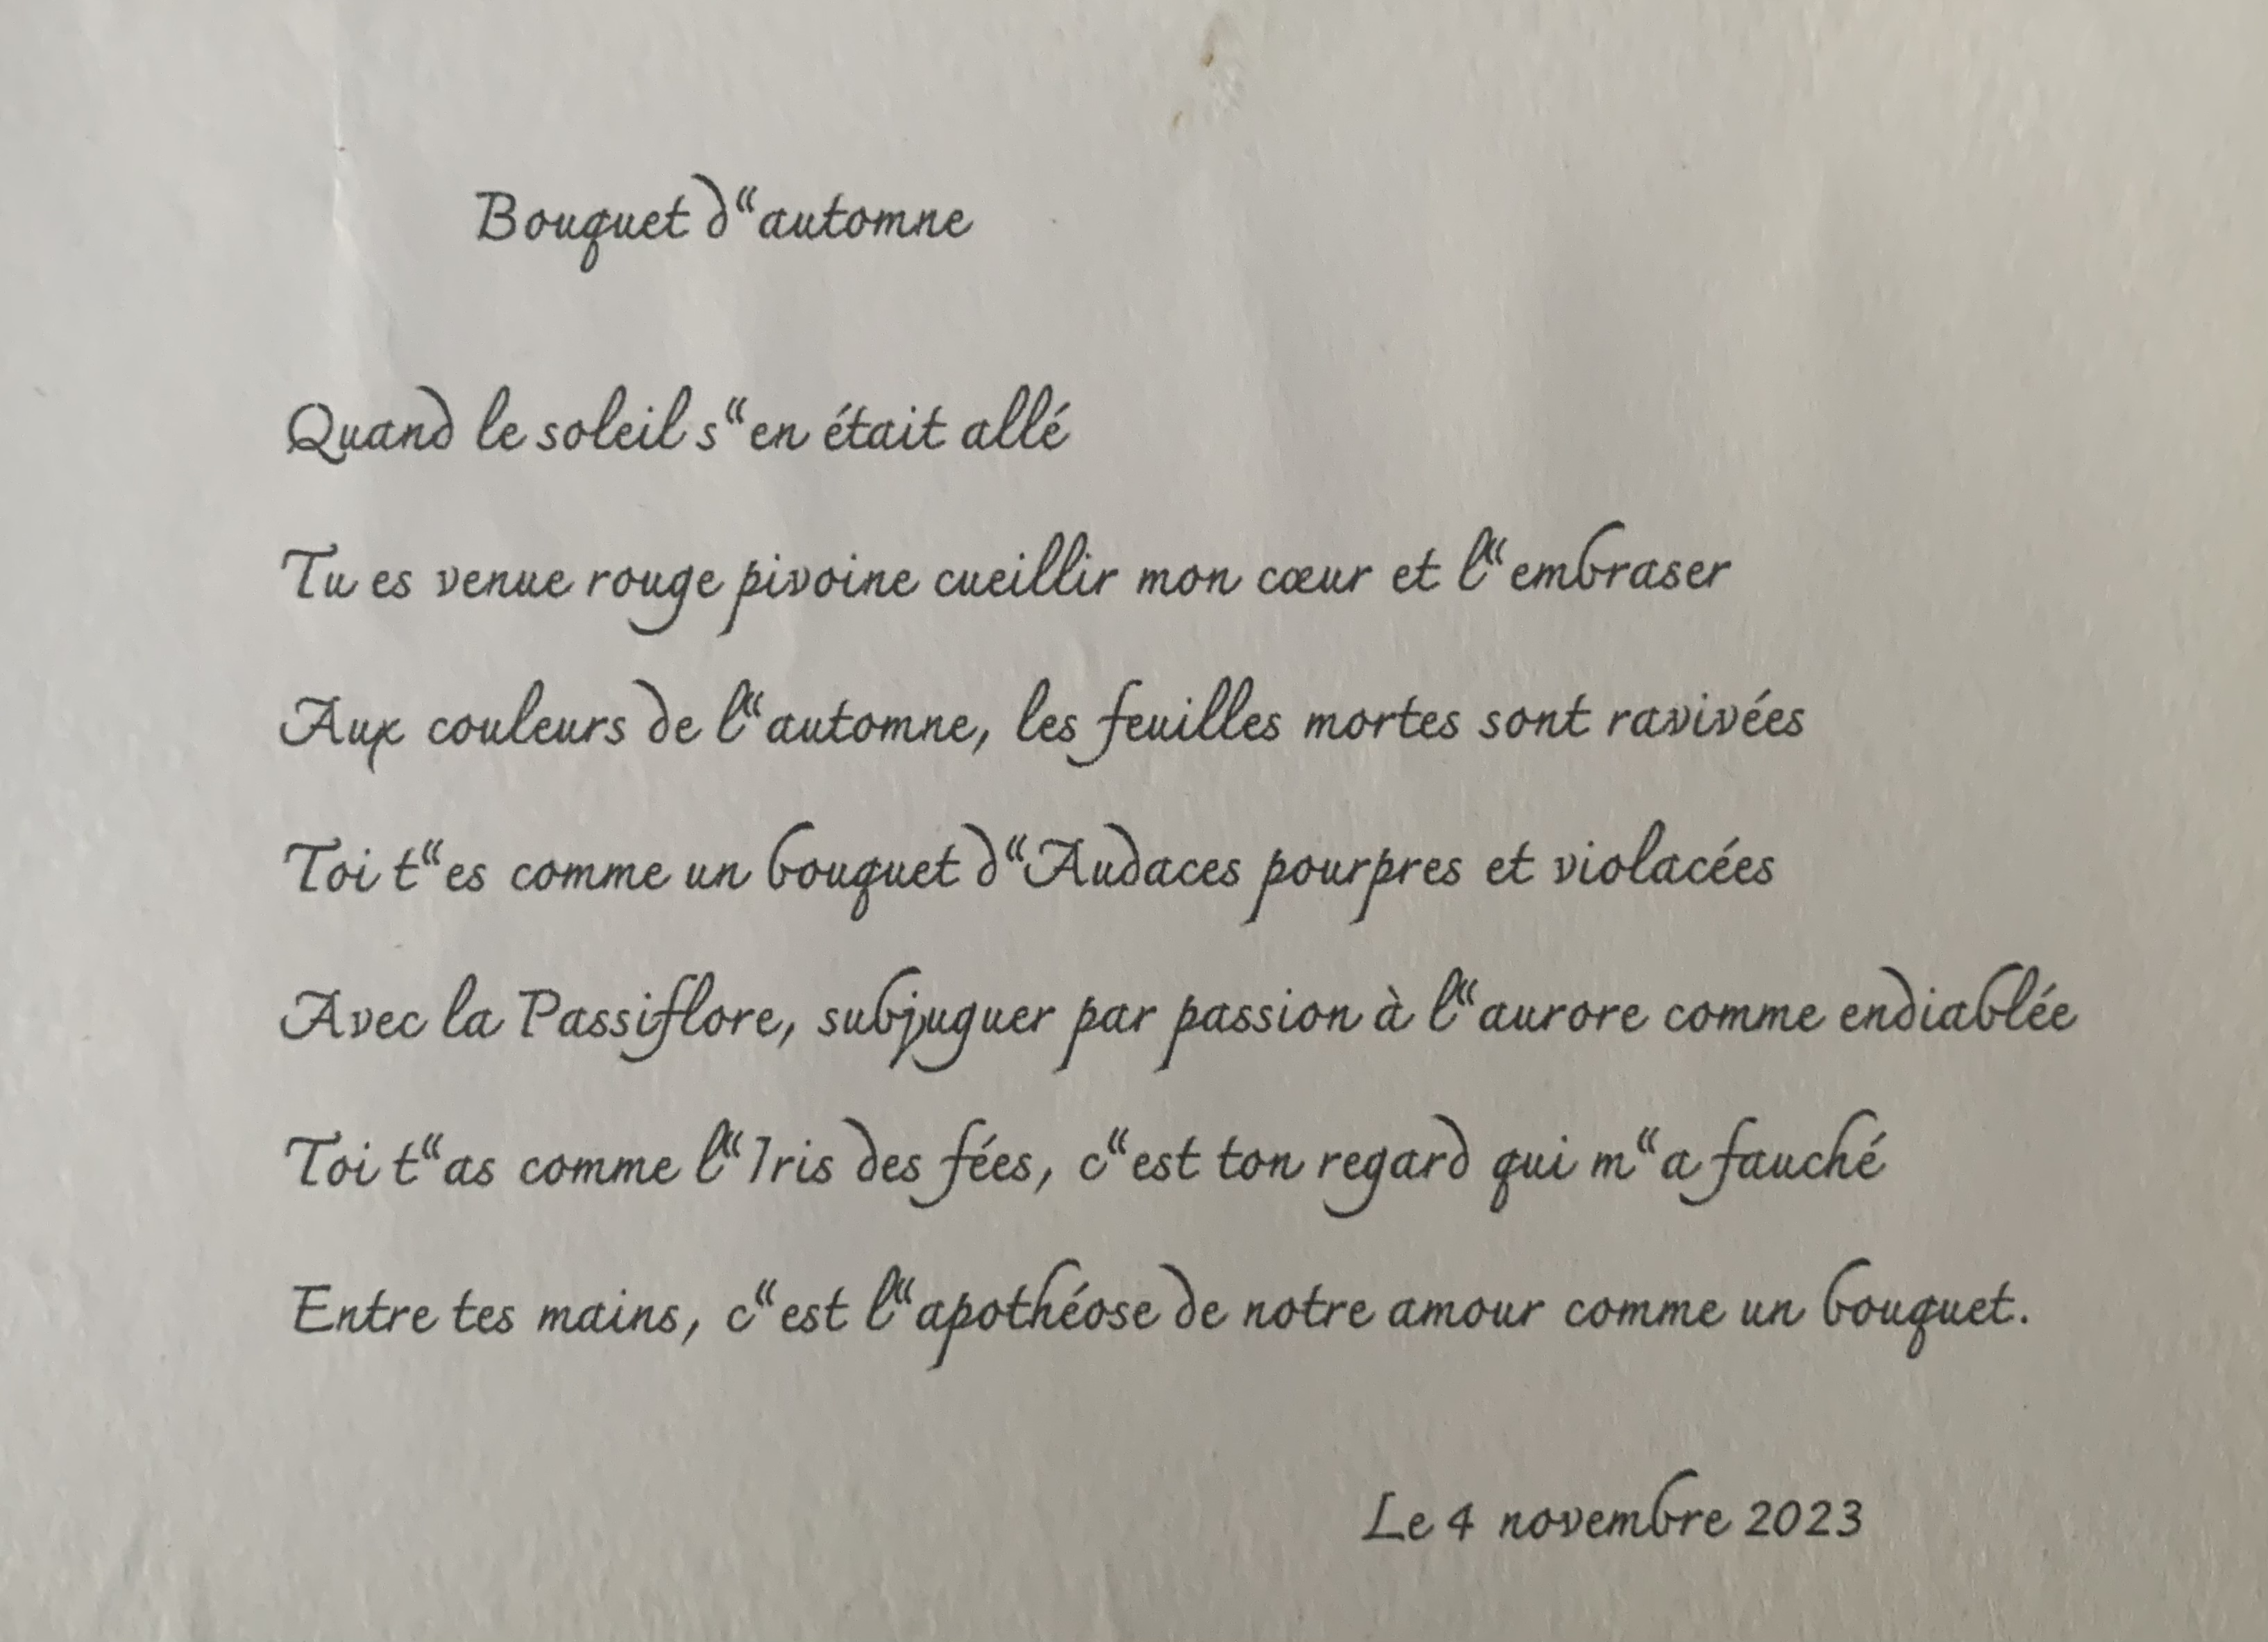 Bouquet d“automne
Quand le soleil s“en était allé
Tu es venue rouge pivoine cueillir mon cœur et l“embraser
Aux couleurs de l“automne, les feuilles mortes sont ravivées
Toi t“es comme un bouquet d“Audaces pourpres et violacées
Avec la Passiflore, subjuguer par passion à l“aurore comme endiablée
Toi t“as comme l“Iris des fées, c“est ton regard qui m“a fauché
Entre tes mains, c“est l“apothéose de notre amour comme un bouquet.
Le 4 novembre 2023